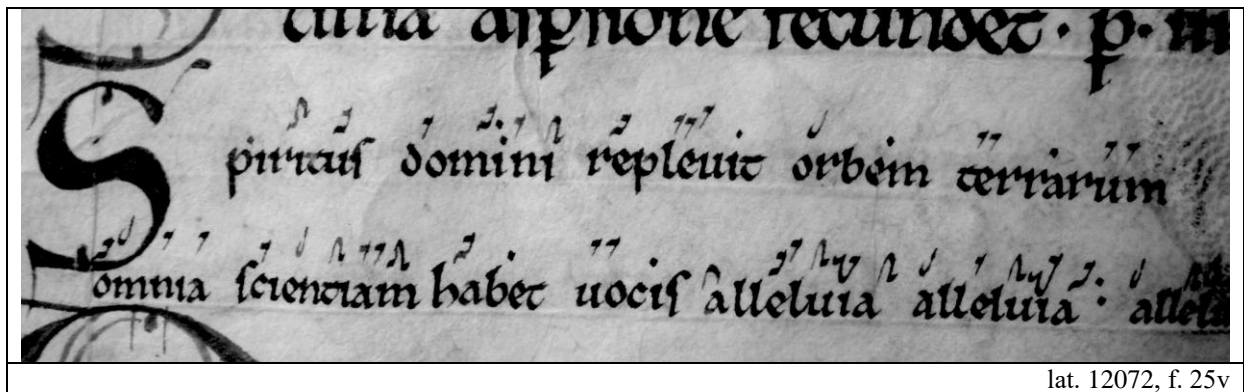 aſꝑſione fecundet · p ·
Spirituſ domini repleuit orbem terrarum
omnia ſcientiam habet uociſ alleluia alleluia : allelu
lat. 12072, f. 25v